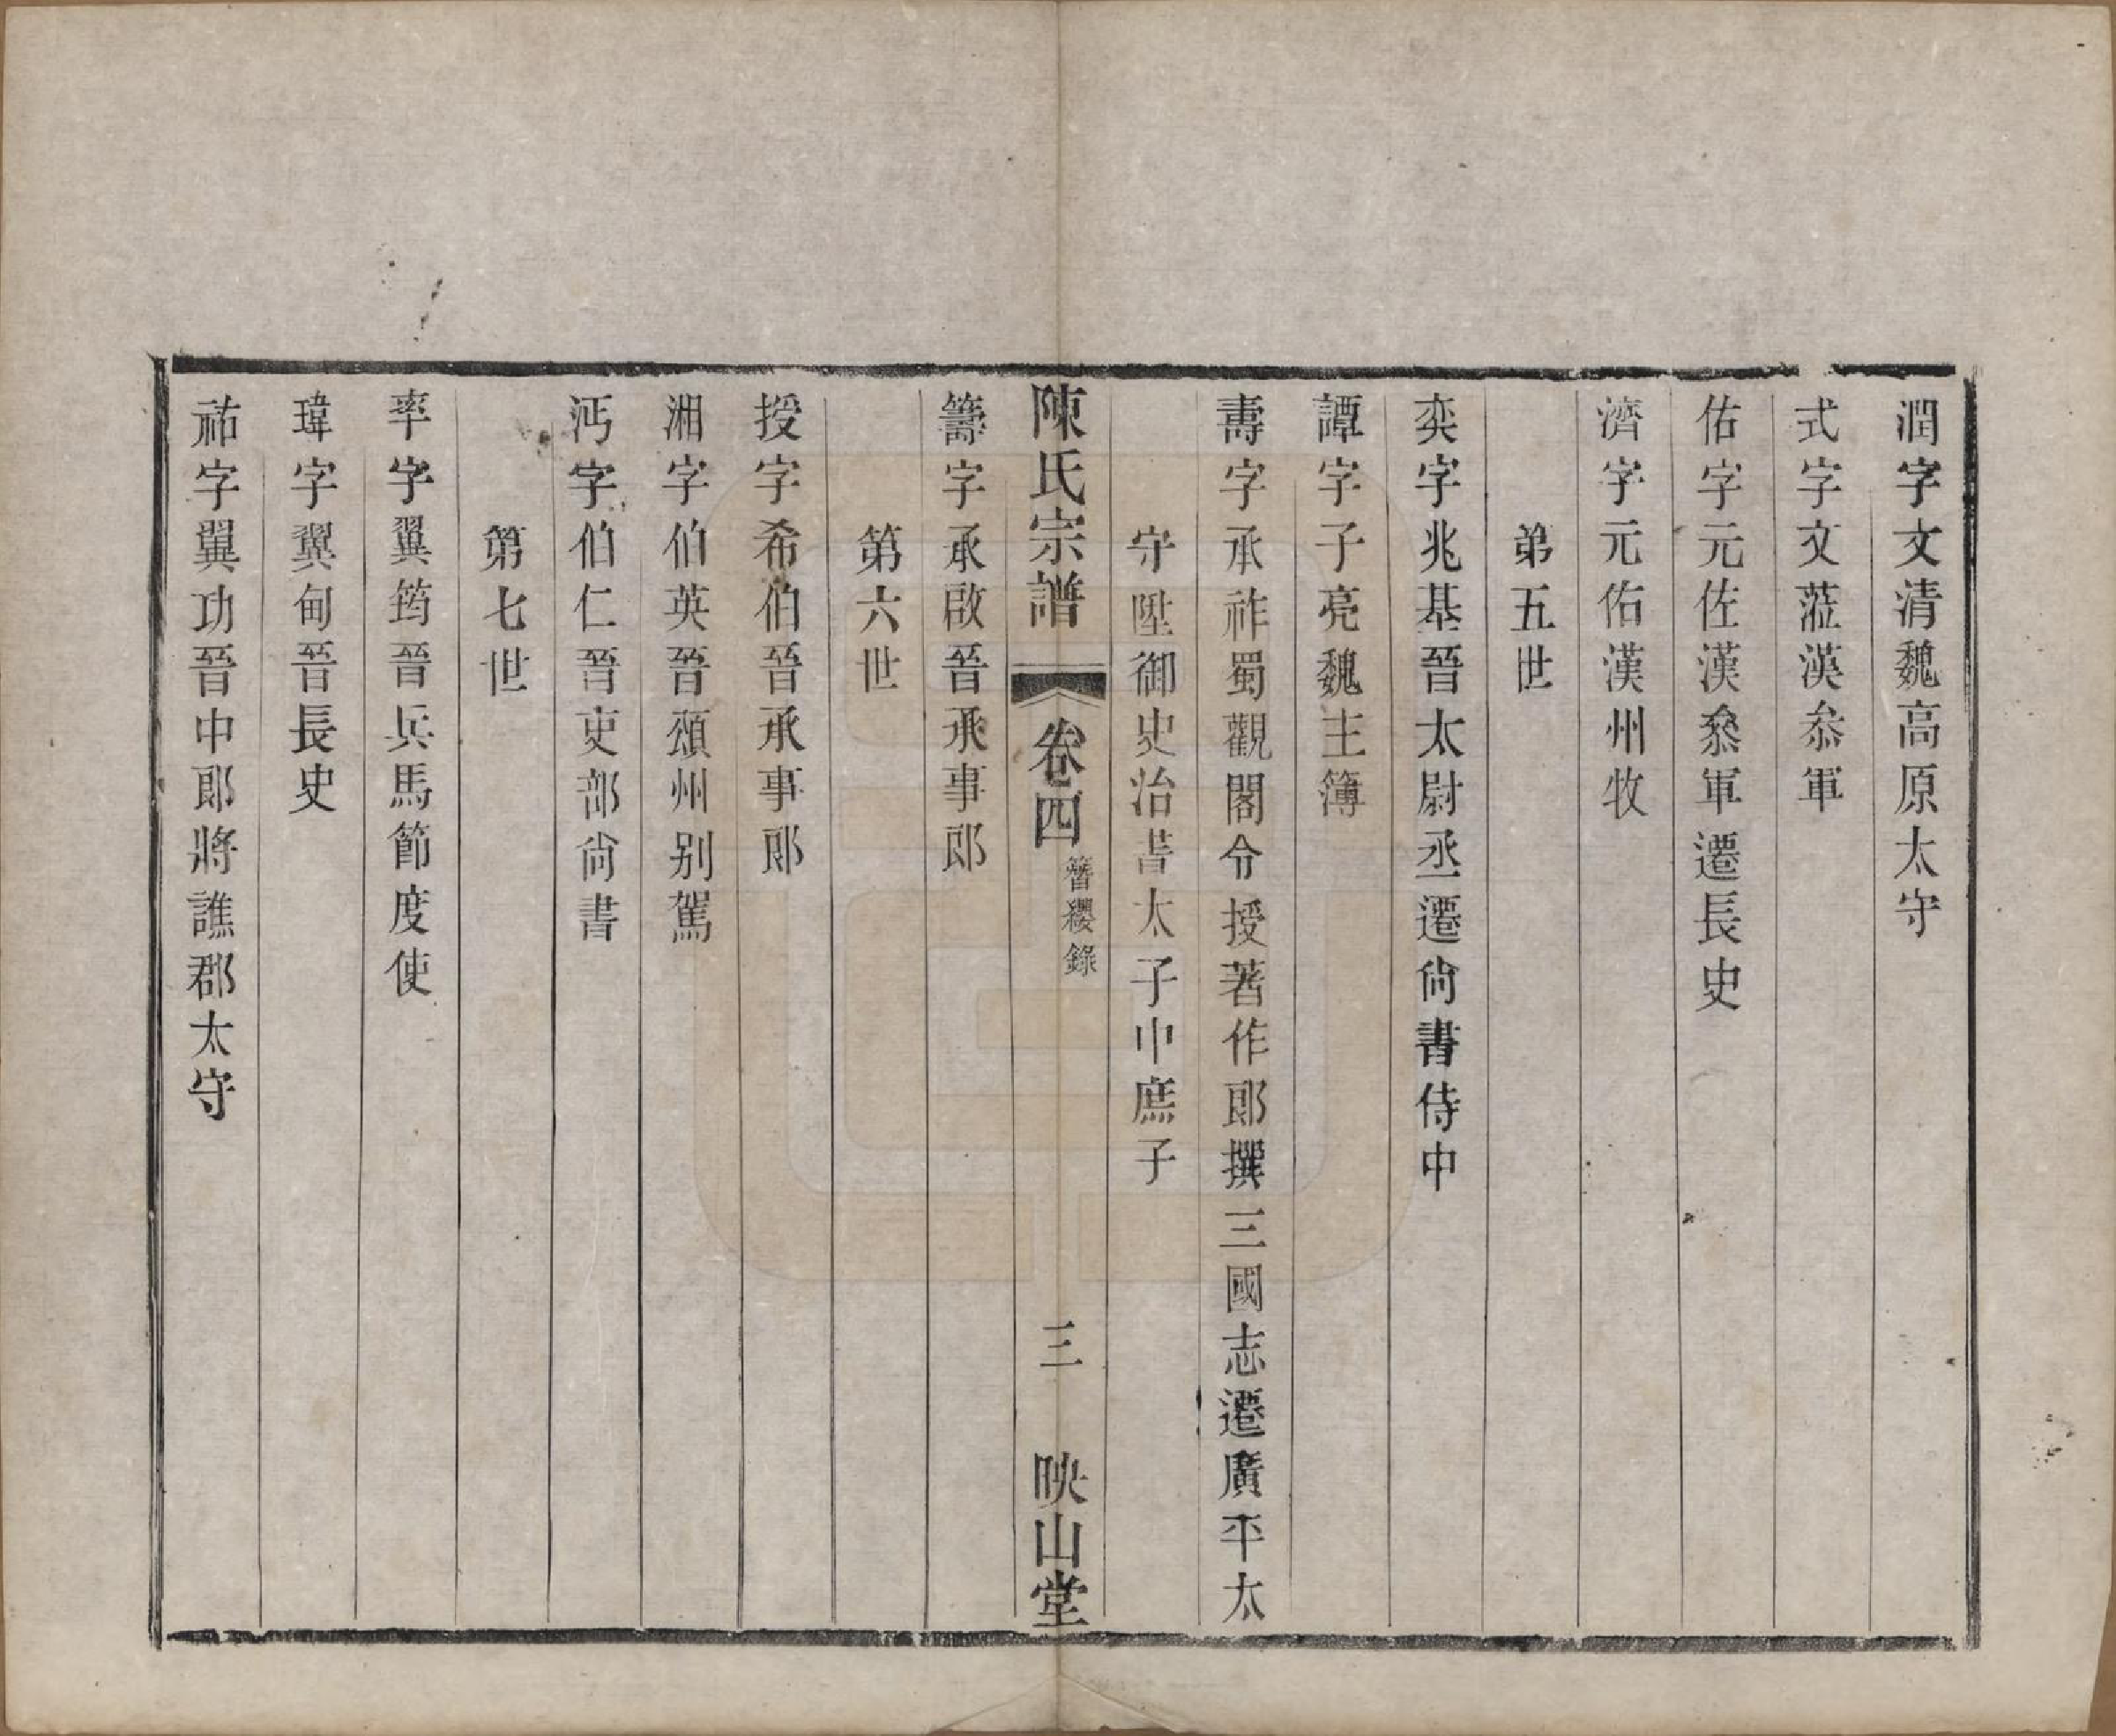 潤字文清魏高原太守
式字文蒞漢叅軍
佑字元佐漢叅軍遷長史
濟字元佑漢州牧
第五世
奕字兆基晉太尉丞遷尙書侍中
譚字子亮魏主簿
壽字承祚蜀觀閣令授著作郎撰三國志遷廣平太
守陞御史治書太子中庶子
陳氏宗譜 卷四 簪纓錄 三 映山堂
籌字承啟晉承事郎
第六世
授字希伯晉承事郎
湘字伯英晉潁州别駕
沔字伯仁晉吏部尙書
第七世
率字翼筠晉兵馬節度使
瑋字翼甸晉長史
祐字翼功晉中郎將譙郡太守